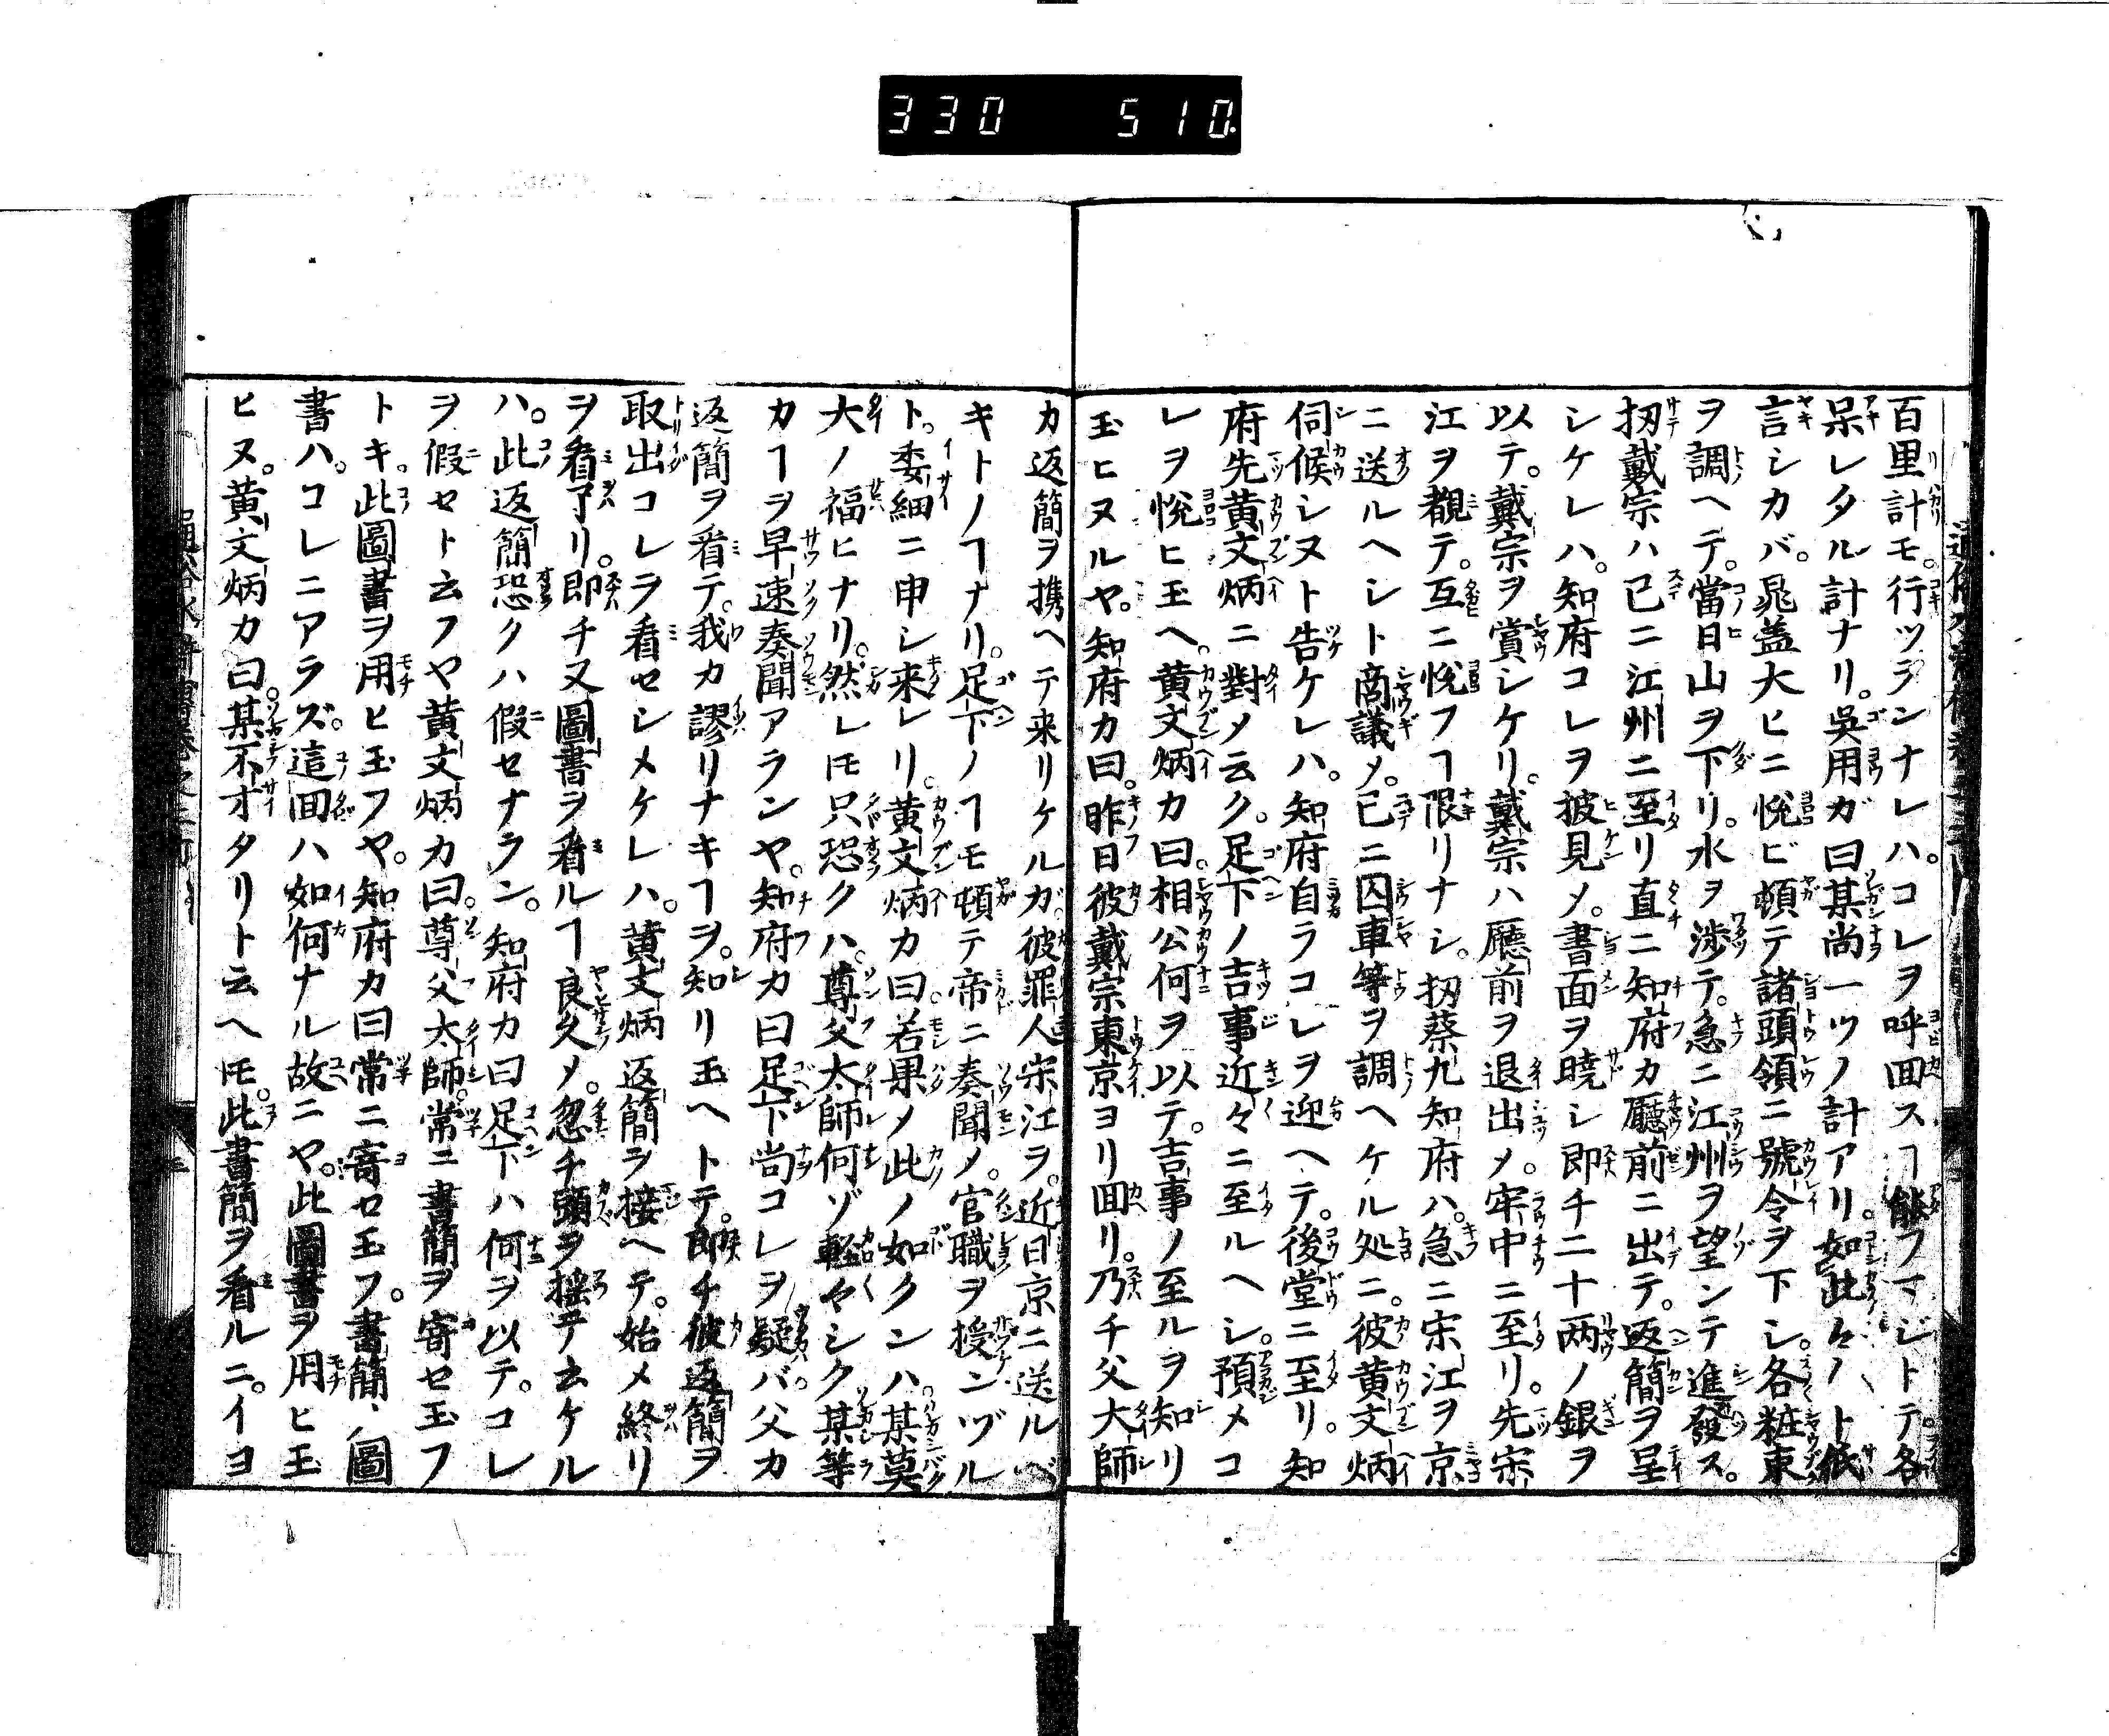 330 510.
百里計モ。行ツランナレハ。コレヲ呼回スヿ能フマジトテ。各
呆レタル計ナリ。吳用ガ曰某尚一ツノ計アリ。如此々々ノト
言シカバ。晁蓋大ヒニ悅ビ頓テ諸頭領ニ號令ヲ下シ。各粧束
ヲ調ヘテ。當日山ヲ下リ。水ヲ渉テ。急ニ江州ヲ望ンテ進發ス。
扨戴宗ハ已ニ江州ニ至リ直ニ知府カ廳前ニ出テ。返簡ヲ呈
シケレハ。知府コレヲ披見メ。書面ヲ曉シ即チ二十两ノ銀ヲ
以テ。戴宗ヲ賞シケリ。戴宗ハ廳前ヲ退出メ。牢中ニ至リ。先宋
江ヲ覩テ。互ニ悅フヿ限リナシ。扨蔡九知府ハ。急ニ宋江ヲ京
ニ送ルヘシト商議メ。已ニ囚車等ヲ調ヘケル処ニ。彼黄文炳
伺候シヌト告ケレハ。知府自ラコレヲ迎ヘテ。後堂ニ至リ。知
府先黄文炳ニ對メ云ク。足下ノ吉事近々ニ至ルヘシ。預メコ
レヲ悅ヒ玉ヘ。黄文炳カ曰。相公何ヲ以テ。吉事ノ至ルヲ知リ
玉ヒヌルヤ。知府カ曰。昨日彼戴宗東京ヨリ回リ。乃チ父大師
カ返簡ヲ携ヘテ来リケルガ。彼罪人宋江ヲ。近日京ニ送ルベ
キトノヿナリ。足下ノヿモ頓テ帝ニ奏聞メ。官職ヲ授ンヅル
ト。委細ニ申シ来レリ。黄文炳カ曰若果メ此ノ如クンハ。某莫
大ノ福ヒナリ。然レ𪜈只恐クハ。尊父太師何ゾ軽々シク某等
カヿヲ早速奏聞アランヤ。知府カ曰足下尚コレヲ疑バ。父カ
返簡ヲ看テ。我カ謬リナキヿヲ。知リ玉ヘトテ。即チ彼返簡ヲ
取出コレヲ看セシメケレハ。黄文炳返簡ヲ接ヘテ。始メ終リ
ヲ看了リ。即チ又圖書ヲ看ルヿ良久メ。忽チ頭ヲ揺テ云ケル
ハ。此返簡恐クハ假セナラン。知府カ曰足下ハ何ヲ以テ。コレ
ヲ假セト云フヤ黄文炳カ曰。尊父太師。常ニ書簡ヲ寄セ玉フ
トキ。此圖書ヲ用ヒ玉フヤ。知府カ曰常ニ寄セ玉フ。書簡、圖
書ハ。コレニアラズ。這回ハ如何ナル故ニヤ。此圖書ヲ用ヒ玉
ヒヌ。黄文炳カ曰。某不才タリト云ヘ𪜈。此書簡ヲ看ルニ。イヨ